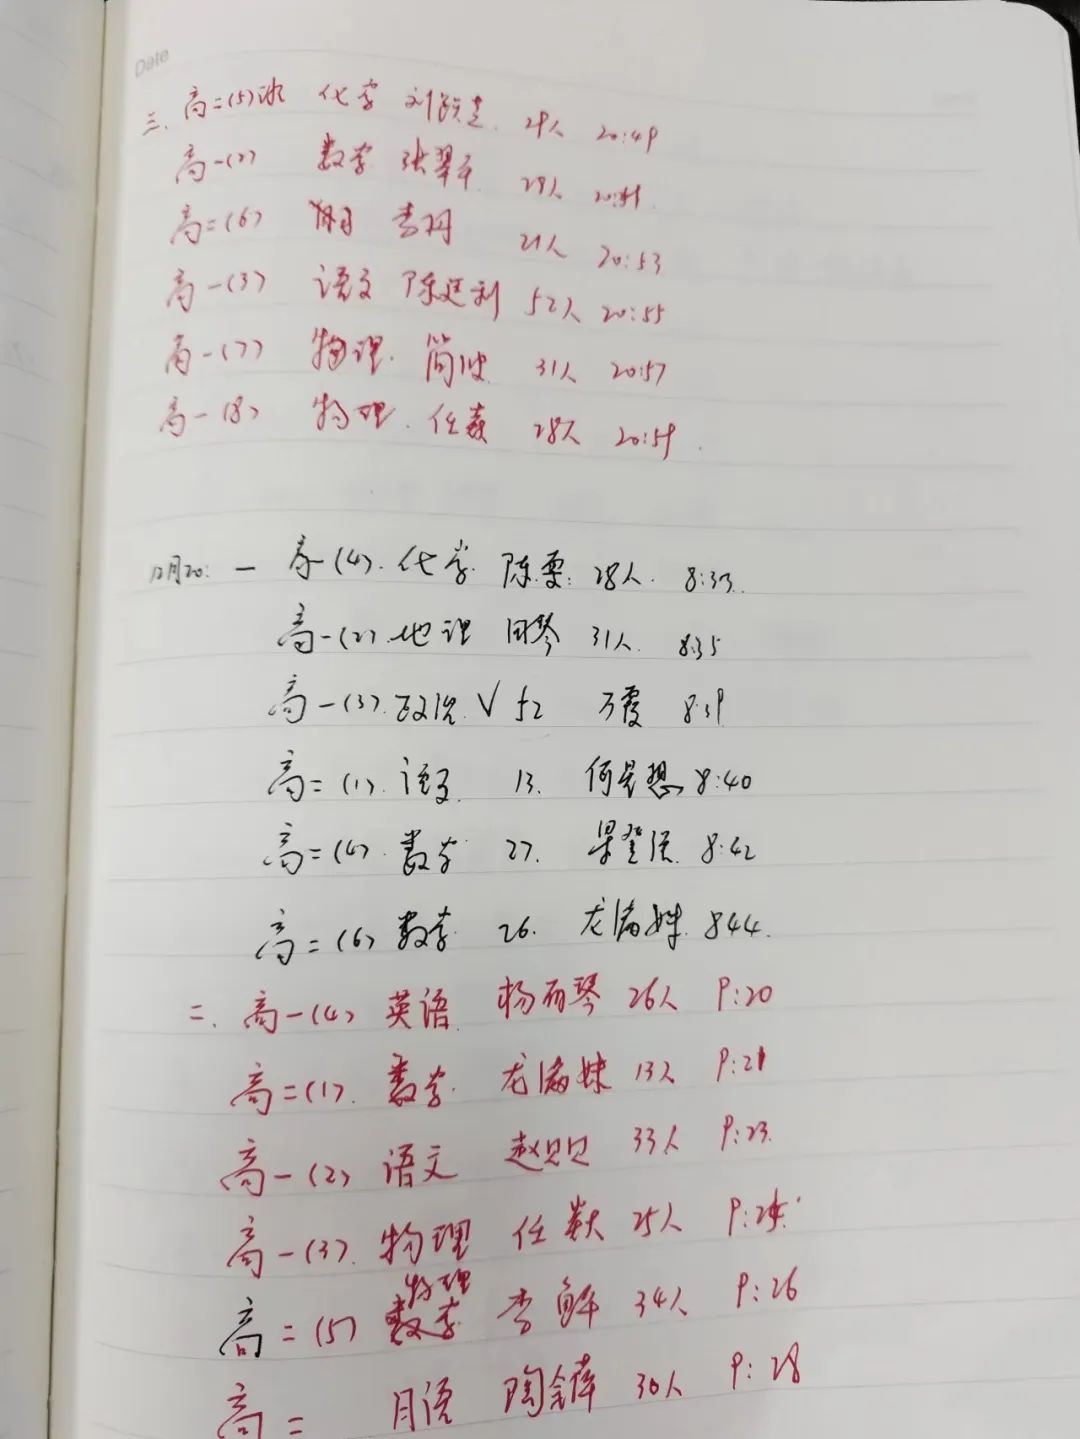 Date
三. 高二(5) 化学 刘 29人 20:49
高一(2) 数学 张翠平 28人
高二(6) 李 21人 20:53
高一(3) 语文 陈廷利 52人 20:55
高一(7) 物理. 简波 31人 20:57
高一(8) 物理. 任 28人 20:59
12月20: 一 高一(4). 化学. 陈 28人. 8:33
高一(2). 地理 田琴 31人. 8:35
高一(3). 政治 √ 52 万霞 8:39
高二(1). 语文 13. 何 8:40
高二(4). 数学 27. 梁登 8:42
高二(6) 数学 26. 龙海妹 844.
二. 高一(4) 英语 杨雨琴 26人 9:20
高二(1). 数学. 龙海妹 13人 9:21
高一(2) 语文 赵 33人 9:23
高一(3). 物理 任 25人
物理
高二(5) 数学 李解 34人 9:26
高二 日语 陶 30人 9:28